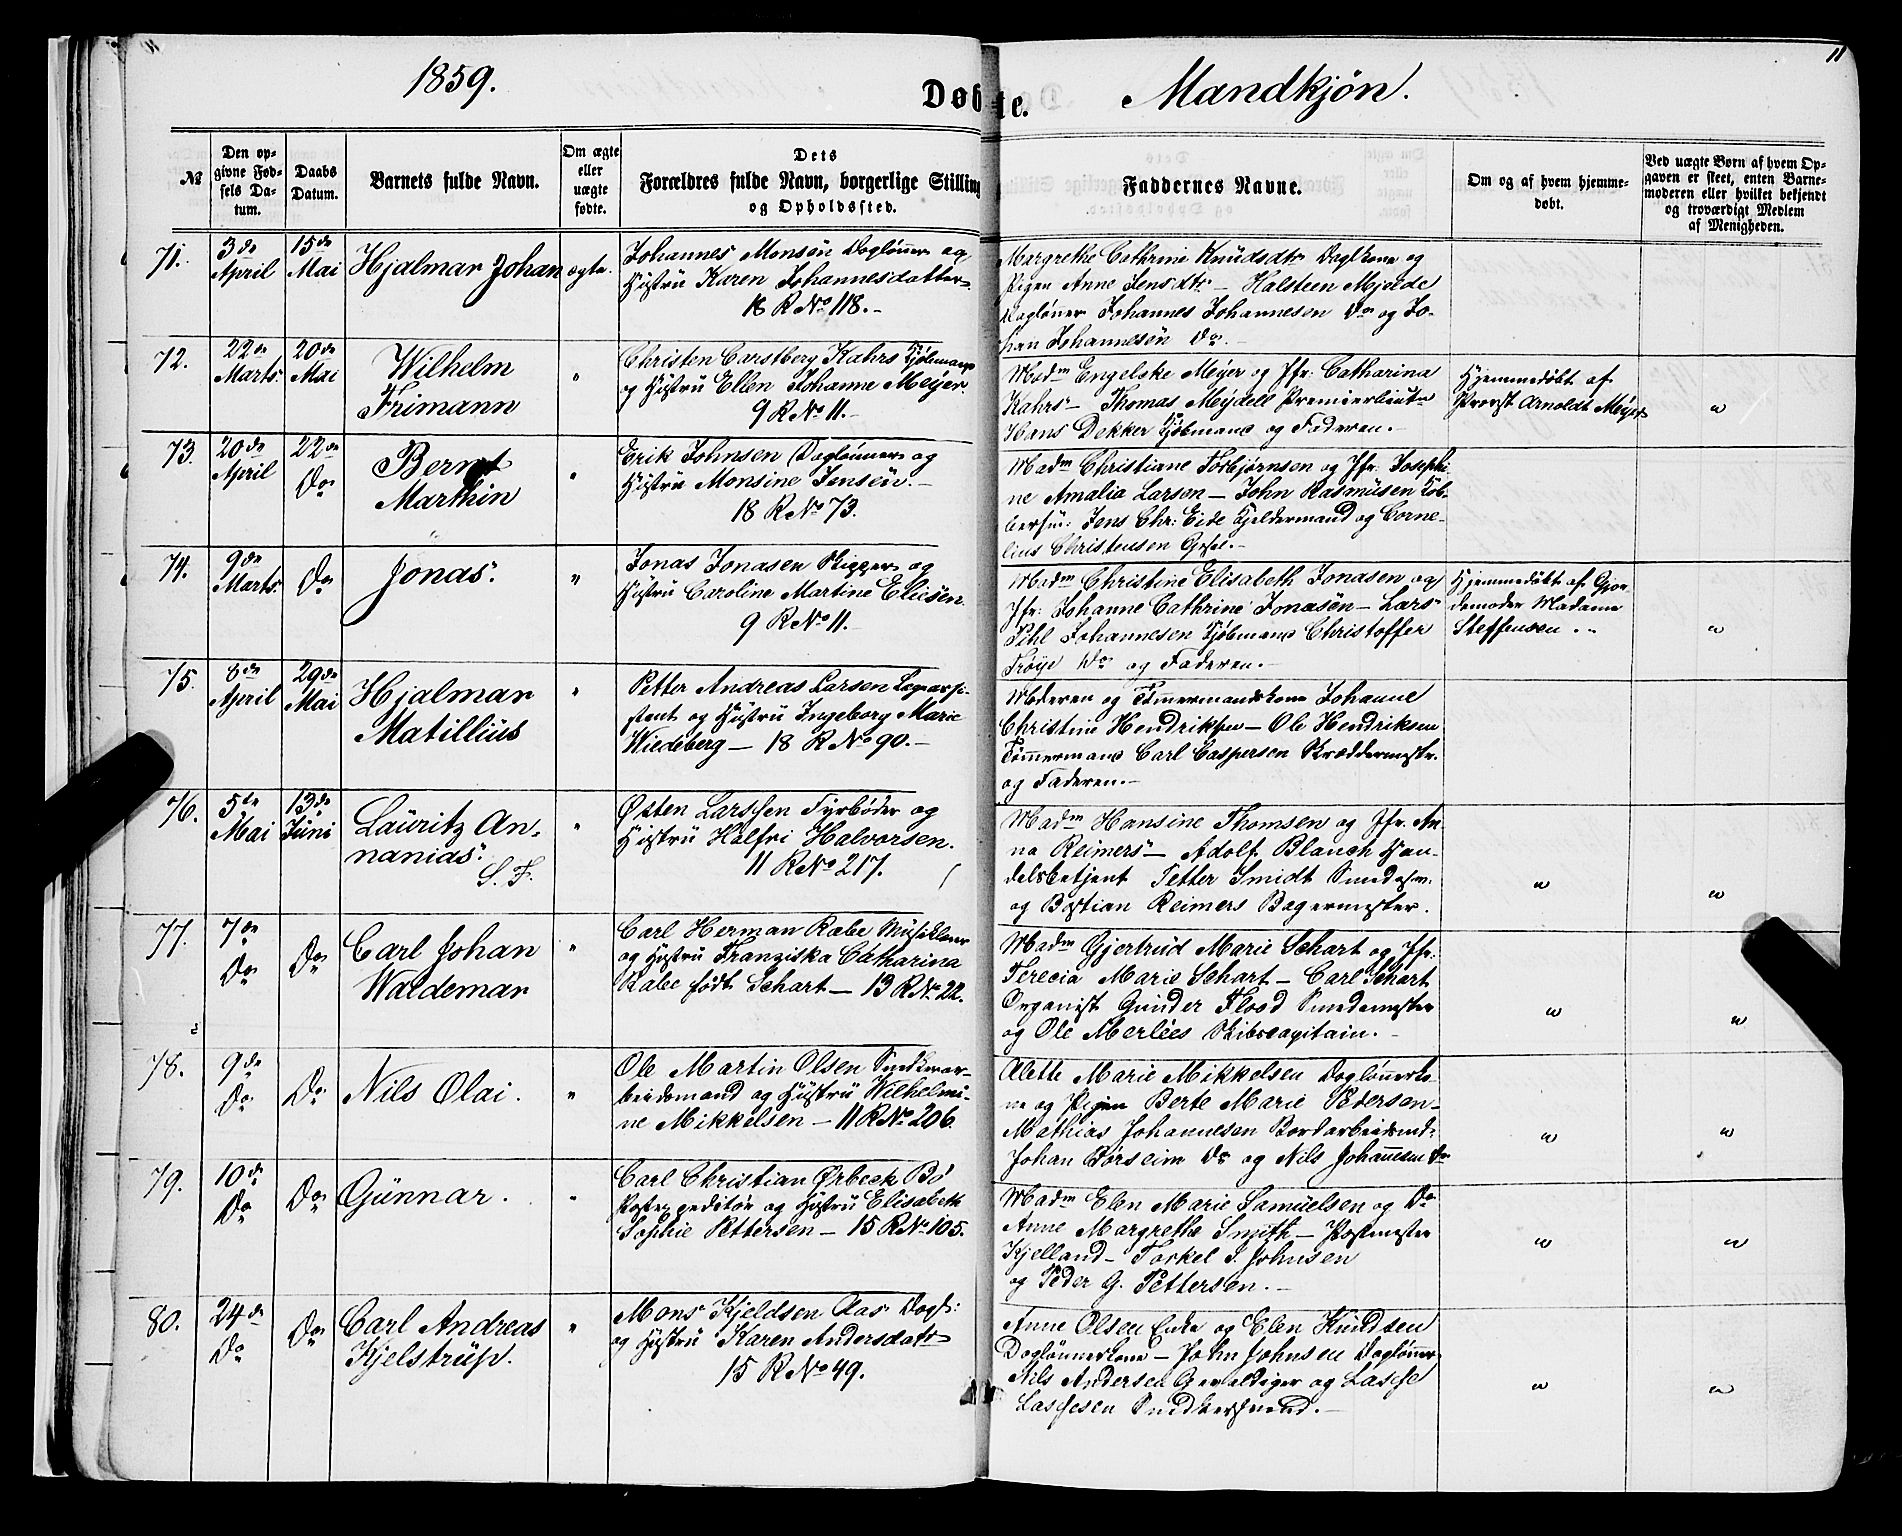 1859.
Døbte.
Mandkjön.
11
№
Den opgivne Fødsels Datum.
Daabs Datum.
Barnets fulde Navn.
Om ægte eller uægte fødte.
Dets Forældres fulde Navn, borgerlige Stilling og Opholdssted.
Faddernes Navne.
Om og af hvem hjemmedøbt.
Ved uægte Børn af hvem Opgaven er skeet, enten Barnemoderen eller hvilket bekjendt og troværdigt Medlem af Menigheden.
71. 3de April 15de Mai Hjalmar Johan ægte.
Johannes Monsen Dagløner og
Hustru Karen Johannesdatter
18 R No 118.-
Margrethe Cathrine Knudsdtr Daglkone og
Pigen Anne Jensdtr - Halsteen Mjelde
Dagløner Johannes Johannesen Do og Jo-
han Johannesön Do.-
72. 22de Marts. 20de Mai Wilhelm Frimann "
Christen Carstberg Kahrs Kjöbmand
og Hustru Ellen Johanne Meyer.
9 R No 11.-
Madm Engelske Meyer og Jfr: Catharina
Kahrs - Thomas Meydell Premierlieutn
Hans Dekker Kjöbmand og Faderen.-
Hjemmedöbt af
Provst Arnoldt Meyer
"
73. 20de April 22de Do Bernt Marthin "
Erik Johnsen Daglönner og
Hustru Monsine Jensen.-
18 R No 73.
Madm Christiane Torbjørnsen og Jfr. Josephi-
ne Amalia Larsen - John Rasmusen Kob-
bersm: Jens Chr: Eide Kjeldermand og Corne-
lius Christensen Gesel.-
74. 9de Marts. Do Jonas. "
Jonas Jonasen Rigger og
Hustru Caroline Martine Eliesen.
9 R No 11.-
Madm Christine Elisabeth Jonasen og
Jfr: Johanne Cathrine Jonasön - Lars
Pihl Johannesen Kjöbmand Christoffer
Tröye Do og Faderen.-
Hjemmedöbt af Gjor-
demoder Madame
Steffensen..
"
75. 8de April 29de Mai Hjalmar Matillius "
Petter Andreas Larsen
og Hustru Ingeborg Marie
Wiedeberg - 18 R No 90.-
Moderen og Tömermandskone Johanne
Christine Hendriksen - Ole Hendriksen
Tömermand Carl Caspersen Skræddermestr.
og Faderen.-
76. 5te Mai 13de Juni Lauritz Annanias. S. F. "
Østen Larssen Fyrbøder og
Hustru Halfri Halvorsen.
11 R No 217.
Madm Hansine Thomsen og Jfr. An-
na Reimers - Adolf Blauch Han-
delsbetjent Petter Smidt Smedesv.
og Bastian Reimers Bagermester.
" "
77. 7de Do Do Carl Johan Waldemar "
Carl Herman Rabe Musiklærer
og Hustru Franziska Catharina
Rabe født Schart - 13 R No 22.
Madm Gjertrud Marie Schart og Jfr:
Terecia Marie Schart - Carl Schart
Organist Gunder Flood Smedemester
og Ole Merlees Skibscapitain.-
" "
78. 9de Do Do Nils Olai. "
Ole Martin Olsen Snedkerar-
beidsmand og Hustru Wilhelmi-
ne Mikkelsen - 11 R No 206.
Alette Marie Mikkelsen Daglønerko-
ne og Pigen Berte Marie Pedersen -
Mathias Johannesen Bordarbeidsmd:
Johan Børseim Do og Nils Johannesen Do
" "
79. 10de Do Do Gunnar. "
Carl Christian Ørbeck Bö
Postexpeditör og Hustru Elisabeth
Sophie Pettersen - 15 R No 105.
Madm Elen Marie Samuelsen og Do
Anne Margrethe Smith - Postmester
Kjelland - Torkel S. Johnsen
og Peder G. Pettersen.-
" "
80. 24de Do Do Carl Andreas Kjelstrup. "
Mons Kjeldsen Aas Dagl:
og Hustru Karen Andersdatr
15 R No 49.
Anne Olsen Enke og Elen Knudsen
Daglønnerkone - John Johnsen Daglønner
Nils Andersen Gevaldiger og Lasse
Lassesen Snedkersvend.-
" "